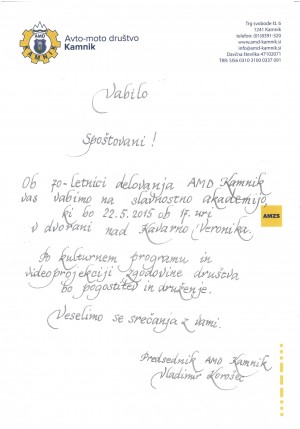 AMD
KAMNIK
Avto-moto društvo
Kamnik
Trg svobode št. 6
1241 Kamnik
telefon: (01)8391-320
www.amd-kamnik.si
info@amd-kamnik.si
Davčna številka 47102071
Vabilo
Spoštovani !
Ob 70-letnici delovanja AMD Kamnik
vas vabimo na slavnostno akademijo,
ki bo 22.5.2015 ob 17. uri
v dvorani nad Kavarno Veronika.
AMZS
Po kulturnem programu in
videoprojekciji zgodovine društva
bo pogostitev in druženje.
Veselimo se srečanja z vami.
Predsednik AMD Kamnik
Vladimir Korošec